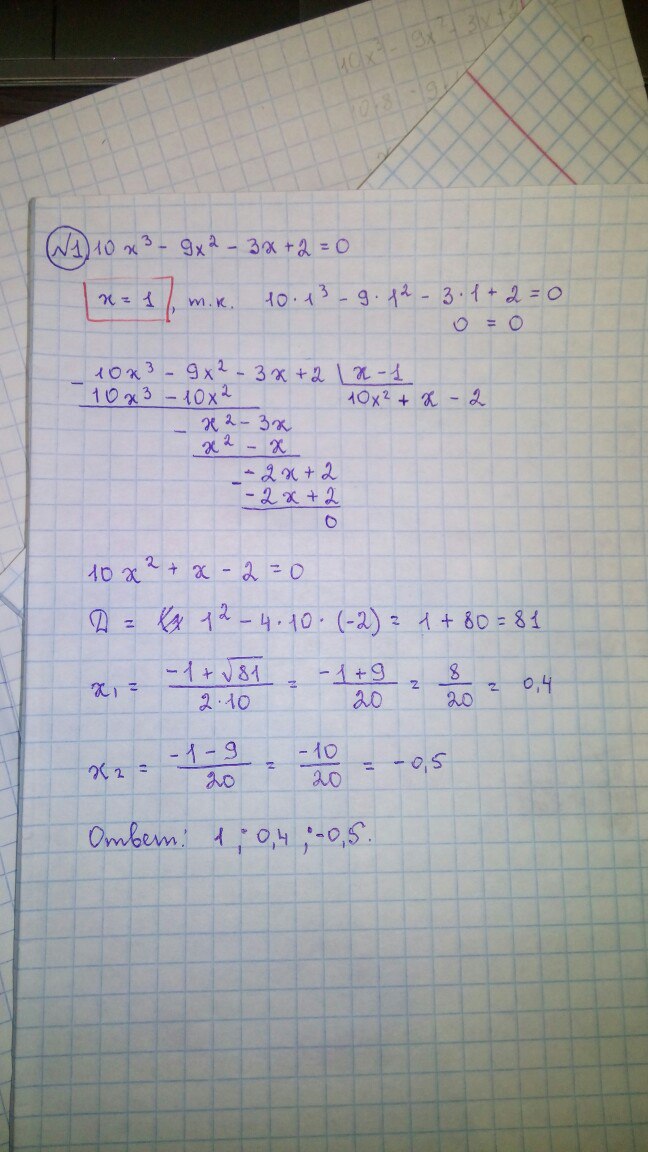 10x³ - 9x² - 3x +
№1 10x³ - 9x² - 3x + 2 = 0
x = 1, т.к. 10·1³ - 9·1² - 3·1 + 2 = 0
0 = 0
- 10x³ - 9x² - 3x + 2 | x - 1
10x³ - 10x² 10x² + x - 2
- x² - 3x
x² - x
- -2x + 2
-2x + 2
0
10x² + x - 2 = 0
D = 1² - 4·10·(-2) = 1 + 80 = 81
x₁ = (-1 + √81)/(2·10) = (-1 + 9)/20 = 8/20 = 0,4
x₂ = (-1 - 9)/20 = -10/20 = -0,5
Ответ: 1 ; 0,4 ; -0,5.